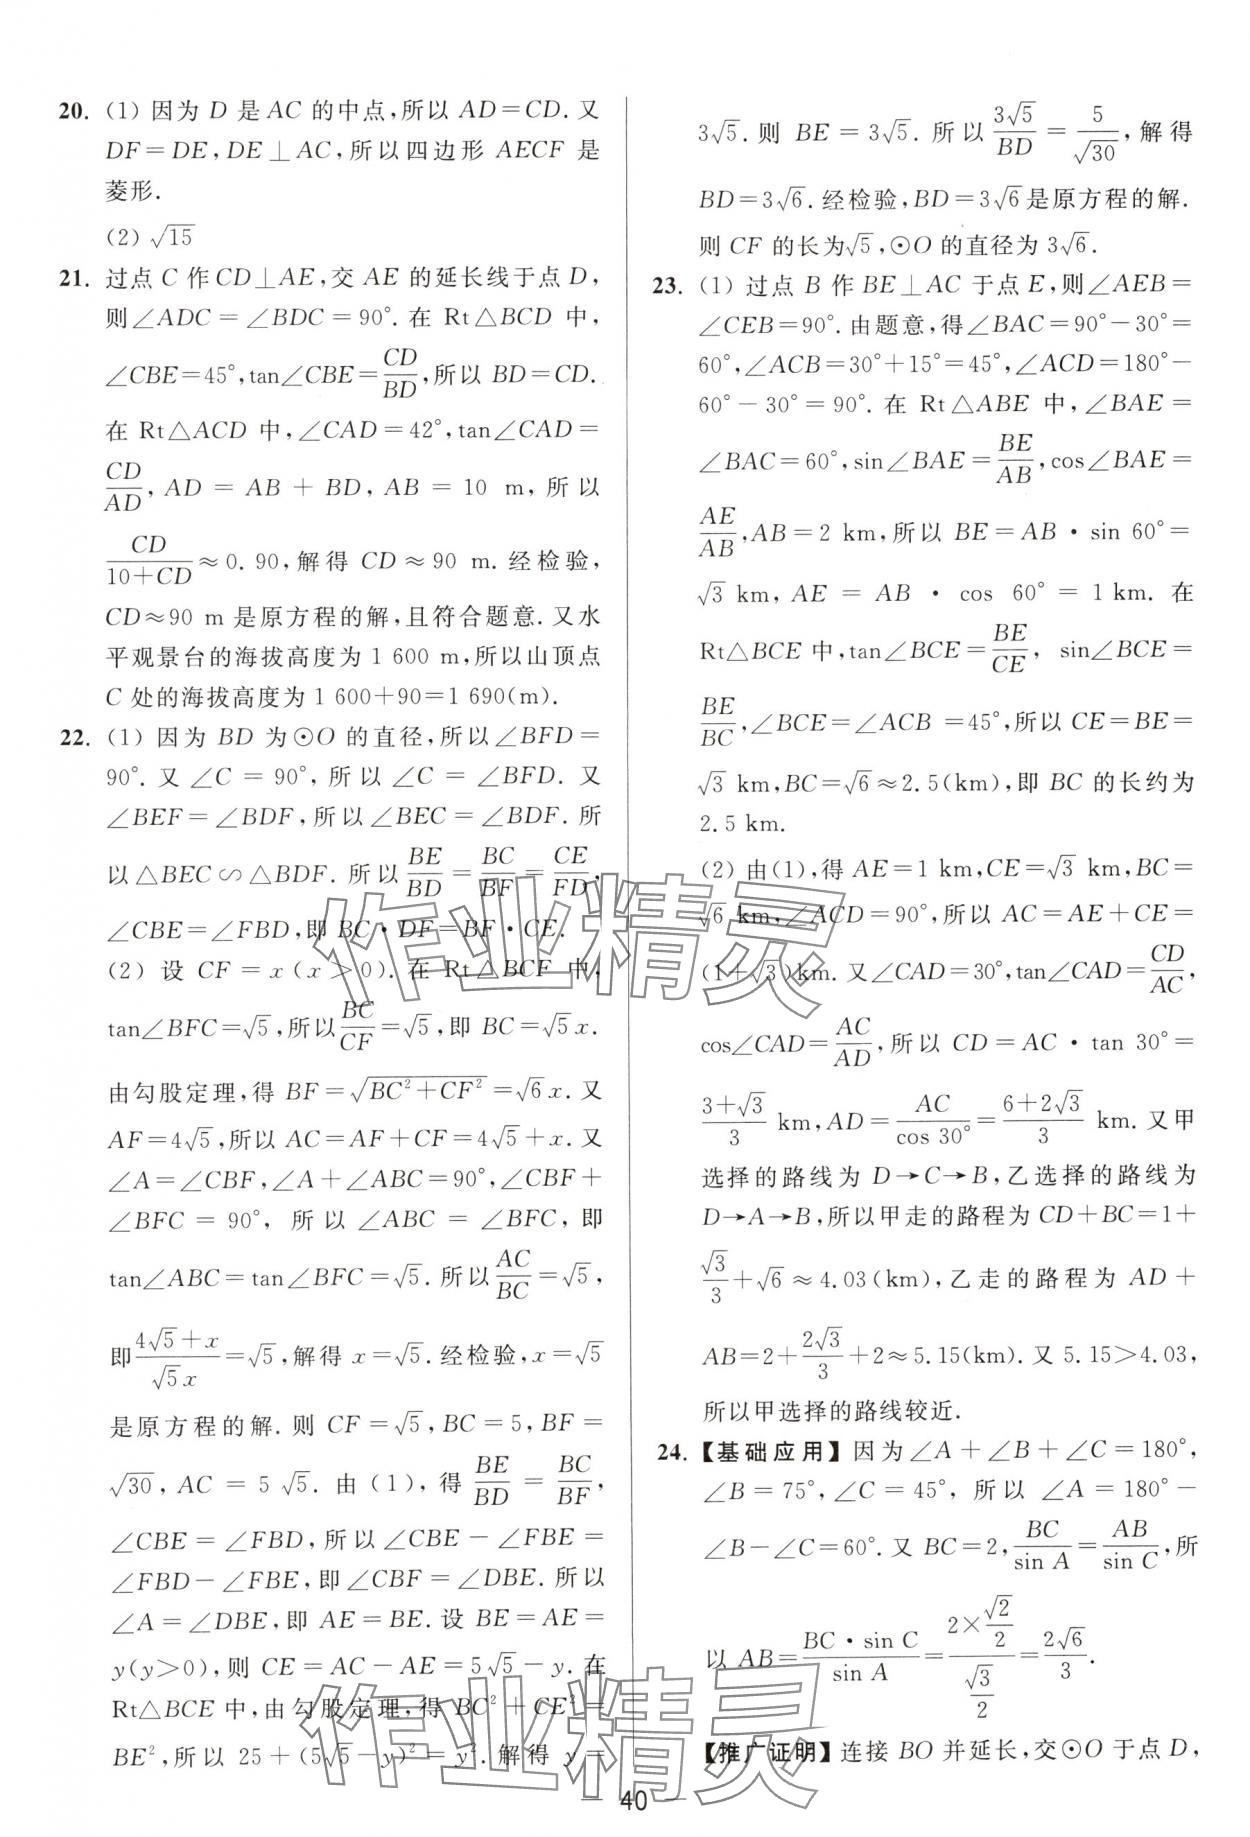 20. (1) 因为 D 是 AC 的中点,所以 AD=CD. 又
DF=DE,DE⊥AC,所以四边形 AECF 是
菱形.
(2) √15
21. 过点 C 作 CD⊥AE,交 AE 的延长线于点 D,
则∠ADC=∠BDC=90°. 在 Rt△BCD 中,
∠CBE=45°,tan∠CBE=CD/BD,所以 BD=CD.
在 Rt△ACD 中,∠CAD=42°,tan∠CAD=
CD/AD, AD = AB + BD, AB = 10 m, 所以
CD/(10+CD)≈0.90,解得 CD≈90 m. 经检验,
CD≈90 m 是原方程的解,且符合题意. 又水
平观景台的海拔高度为 1 600 m,所以山顶点
C 处的海拔高度为 1 600+90=1 690(m).
22. (1) 因为 BD 为⊙O 的直径,所以∠BFD=
90°. 又 ∠C = 90°, 所以 ∠C = ∠BFD. 又
∠BEF=∠BDF,所以∠BEC=∠BDF. 所
以△BEC∽△BDF. 所以BE/BD=BC/BF=CE/FD,
∠CBE=∠FBD,即 BC·DF=BF·CE.
(2) 设 CF=x(x>0). 在 Rt△BCF 中,
tan∠BFC=√5,所以BC/CF=√5,即 BC=√5x.
由勾股定理,得 BF=√(BC²+CF²)=√6x. 又
AF=4√5,所以 AC=AF+CF=4√5+x. 又
∠A=∠CBF,∠A+∠ABC=90°,∠CBF+
∠BFC = 90°, 所以 ∠ABC = ∠BFC, 即
tan∠ABC=tan∠BFC=√5. 所以AC/BC=√5,
即(4√5+x)/(√5x)=√5,解得 x=√5. 经检验,x=√5
是原方程的解. 则 CF=√5,BC=5,BF=
√30, AC = 5√5. 由 (1), 得 BE/BD = BC/BF,
∠CBE = ∠FBD, 所以 ∠CBE - ∠FBE =
∠FBD-∠FBE,即∠CBF=∠DBE. 所以
∠A=∠DBE,即 AE=BE. 设 BE=AE=
y(y>0),则 CE=AC-AE=5√5-y. 在
Rt△BCE 中,由勾股定理,得 BC²+CE²=
BE²,所以 25+(5√5-y)²=y². 解得 y=
3√5. 则 BE=3√5. 所以3√5/BD=5/√30,解得
BD=3√6. 经检验,BD=3√6是原方程的解.
则 CF 的长为√5,⊙O 的直径为 3√6.
23. (1) 过点 B 作 BE⊥AC 于点 E,则∠AEB=
∠CEB=90°. 由题意,得∠BAC=90°-30°=
60°,∠ACB=30°+15°=45°,∠ACD=180°-
60°-30°=90°. 在 Rt△ABE 中,∠BAE=
∠BAC=60°,sin∠BAE=BE/AB,cos∠BAE=
AE/AB,AB=2 km,所以 BE=AB·sin 60°=
√3 km, AE = AB · cos 60° = 1 km. 在
Rt△BCE 中,tan∠BCE=BE/CE, sin∠BCE=
BE/BC,∠BCE=∠ACB=45°,所以 CE=BE=
√3 km,BC=√6≈2.5(km),即 BC 的长约为
2.5 km.
(2) 由(1),得 AE=1 km,CE=√3 km,BC=
√6 km,∠ACD=90°,所以 AC=AE+CE=
(1+√3)km. 又∠CAD=30°,tan∠CAD=CD/AC,
cos∠CAD=AC/AD,所以 CD=AC·tan 30°=
(3+√3)/3 km,AD=AC/cos 30°=(6+2√3)/3 km. 又甲
选择的路线为 D→C→B,乙选择的路线为
D→A→B,所以甲走的路程为 CD+BC=1+
√3/3+√6≈4.03(km),乙走的路程为 AD+
AB=2+2√3/3+2≈5.15(km). 又 5.15>4.03,
所以甲选择的路线较近.
24. 【基础应用】因为∠A+∠B+∠C=180°,
∠B=75°,∠C=45°, 所以 ∠A=180°-
∠B-∠C=60°. 又 BC=2,BC/sin A=AB/sin C,所
以 AB=BC·sin C/sin A=(2×√2/2)/(√3/2)=2√6/3.
【推广证明】连接 BO 并延长,交⊙O 于点 D,
— 40 —
作业精灵
作业精灵